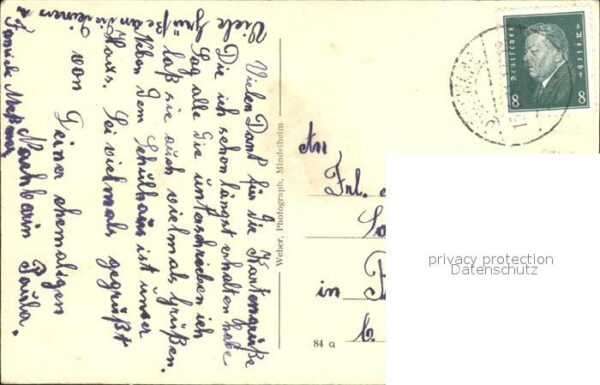 Vielen Dank für die Kartengrüße
Die ich schon längst erhalten habe
Sag alle die unterschrieben ich
laß sie auch vielmals Grüßen.
Neben dem Schulhaus ist unser
Haus. Sei vielmals gegrüßt
von Deiner ehemaligen
Nachbarin Paula.
Viele Grüße an
Familie Meßner
Weber, Photograph, Mindelheim
84 a
An
Frl.
in
b.
Deutsches Reich
8 8
privacy protection
Datenschutz